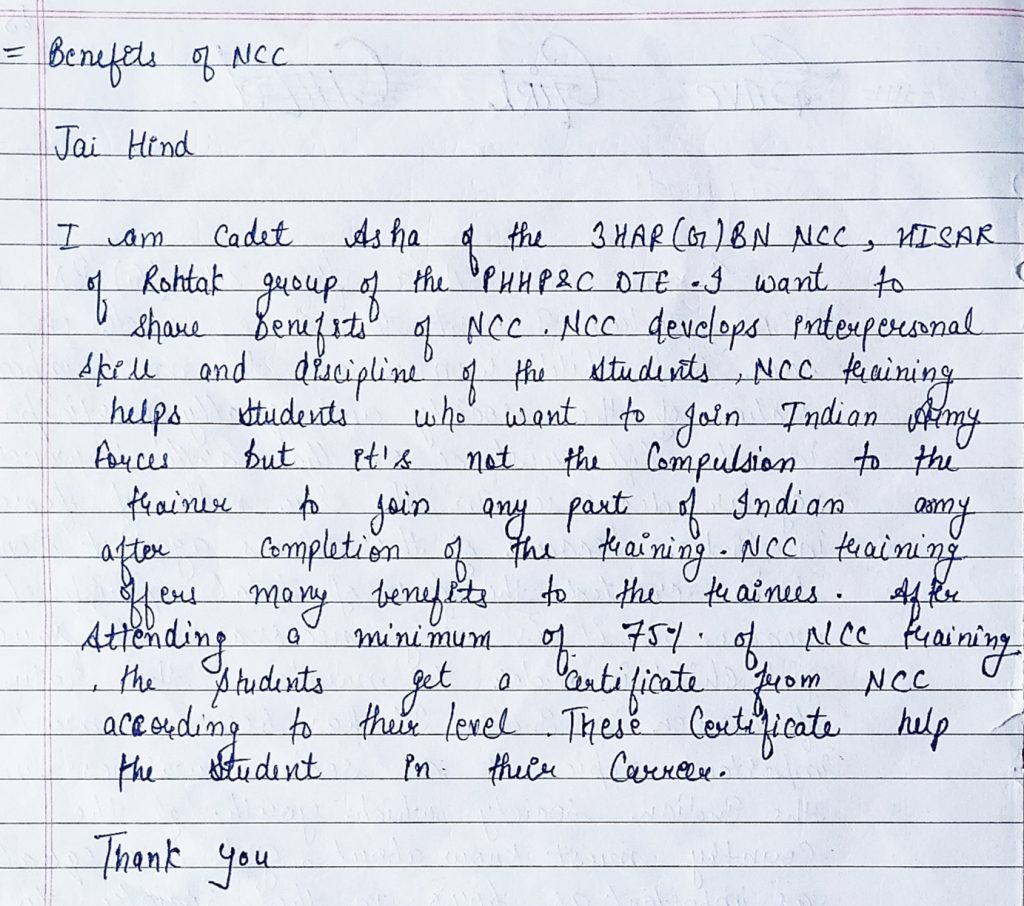 = Benefits of NCC
Jai Hind
I am Cadet Asha of the 3HAR(G)BN NCC, HISAR
of Rohtak group of the PHHP&C DTE. I want to
share benefits of NCC. NCC develops interpersonal
skill and discipline of the students, NCC training
helps students who want to join Indian Army
forces but it's not the compulsion to the
trainer to join any part of Indian army
after completion of the training. NCC training
offers many benefits to the trainees. After
Attending a minimum of 75%. of NCC training
, the students get a certificate from NCC
according to their level. These Certificate help
the student in their Carreer.
Thank you